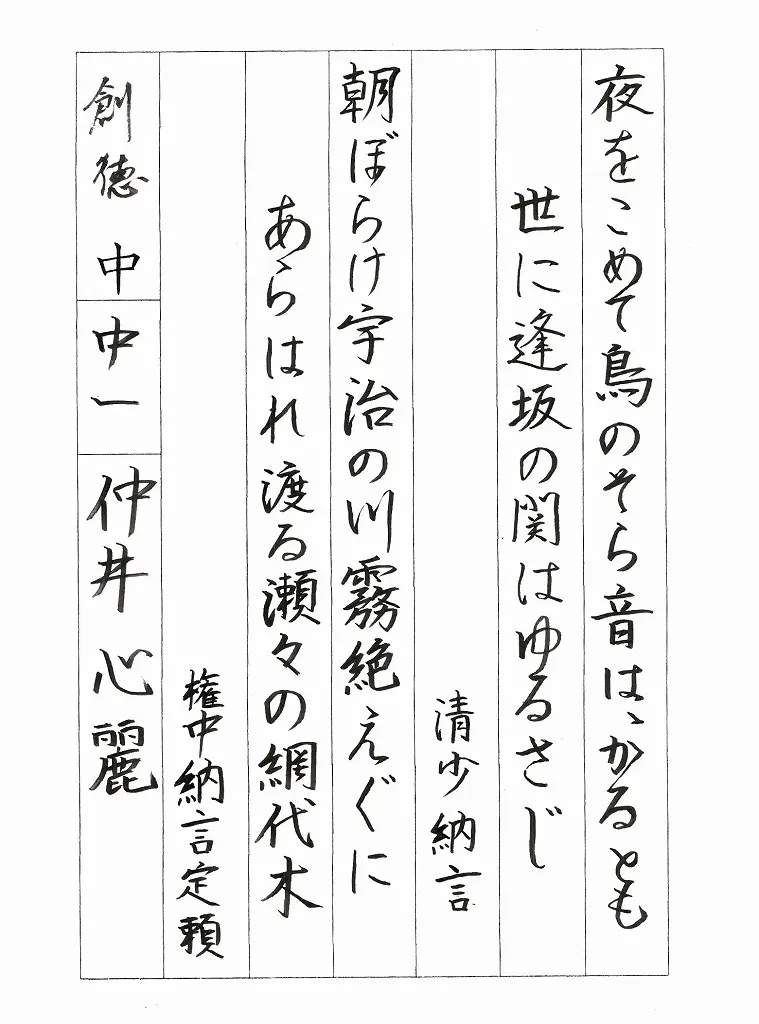 夜をこめて鳥のそら音はゝかるとも
世に逢坂の関はゆるさじ
清少納言
朝ぼらけ宇治の川霧絶え〲に
あらはれ渡る瀬々の網代木
権中納言定頼
創徳中 中一 仲井心麗